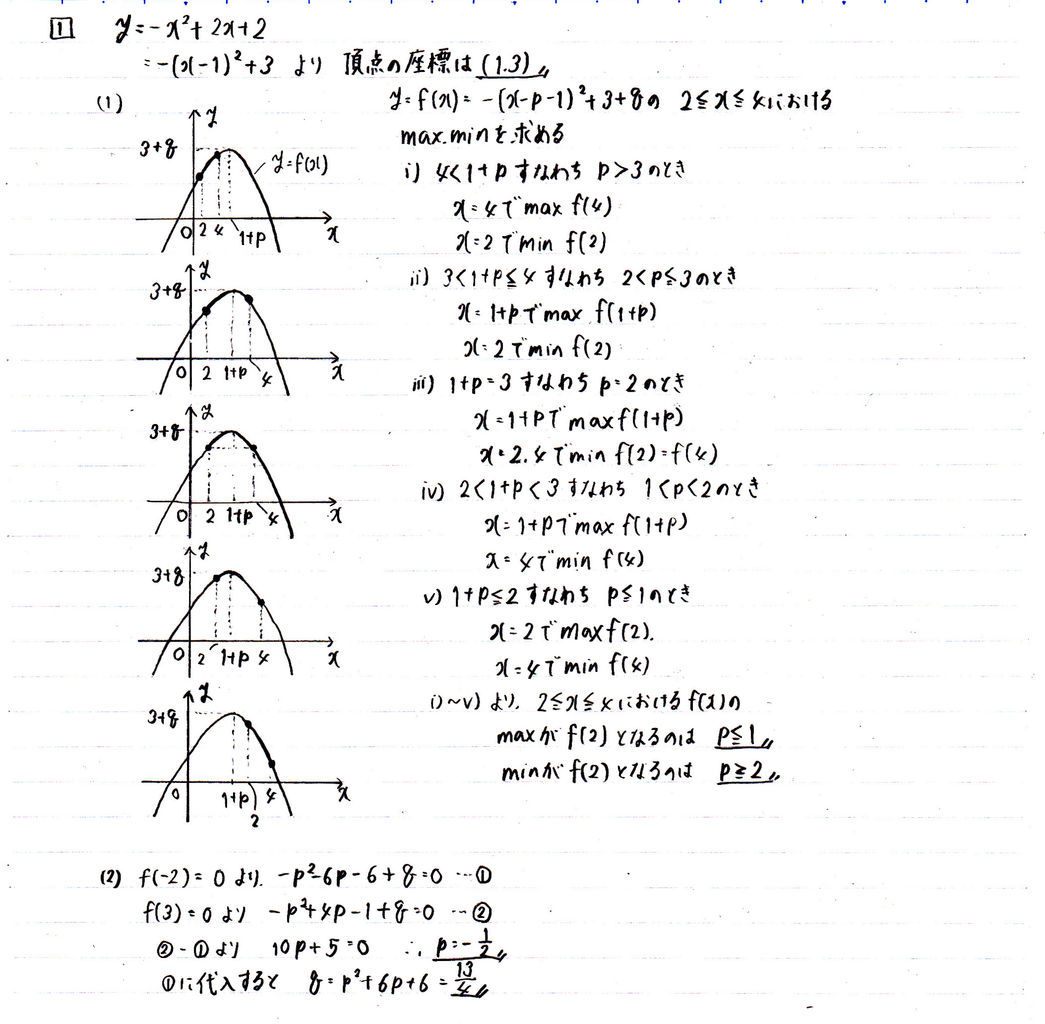 1 y=-x²+2x+2
=-(x-1)²+3 より 頂点の座標は (1.3)〃
(1)
y=f(x)=-(x-p-1)²+3+qの 2≦x≦4における
max.minを求める
i) 4<1+p すなわち p>3のとき
x=4でmax f(4)
x=2でmin f(2)
ii) 3<1+p≦4 すなわち 2<p≦3のとき
x=1+pでmax f(1+p)
x=2でmin f(2)
iii) 1+p=3 すなわち p=2のとき
x=1+pでmax f(1+p)
x=2.4でmin f(2)=f(4)
iv) 2<1+p<3 すなわち 1<p<2のとき
x=1+pでmax f(1+p)
x=4でmin f(4)
v) 1+p≦2 すなわち p≦1のとき
x=2でmax f(2).
x=4でmin f(4)
i)~v) より. 2≦x≦4における f(x)の
maxが f(2) となるのは p≦1〃
minが f(2) となるのは p≧2〃
y
3+q
y=f(x)
0 2 4 1+p x
y
3+q
0 2 1+p 4 x
y
3+q
0 2 1+p 4 x
y
3+q
0 2 1+p 4 x
y
3+q
0 1+p 4 x
2
(2) f(-2)=0 より. -p²-6p-6+q=0 …①
f(3)=0 より -p²+4p-1+q=0 …②
②-①より 10p+5=0 ∴ p=-1/2〃
①に代入すると q=p²+6p+6=13/4〃